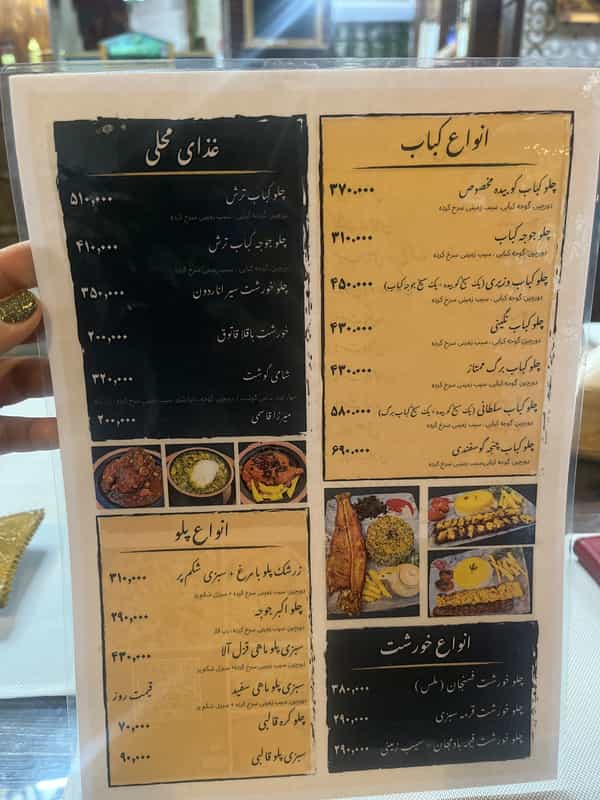 انواع کباب
چلو کباب کوبیده مخصوص ۳۷۰,۰۰۰
دورچین: گوجه کبابی، سیب زمینی سرخ کرده
چلو جوجه کباب ۳۱۰,۰۰۰
دورچین: گوجه کبابی، سیب زمینی سرخ کرده
چلو کباب وزیری (یک سیخ کوبیده - یک سیخ جوجه کباب) ۴۵۰,۰۰۰
دورچین: گوجه کبابی، سیب زمینی سرخ کرده
چلو کباب نگینی ۴۳۰,۰۰۰
دورچین: گوجه کبابی، سیب زمینی سرخ کرده
چلو کباب برگ ممتاز ۴۳۰,۰۰۰
دورچین: گوجه کبابی، سیب زمینی سرخ کرده
چلو کباب سلطانی (یک سیخ کوبیده - یک سیخ کباب برگ) ۵۸۰,۰۰۰
دورچین: گوجه کبابی، سیب زمینی سرخ کرده
چلو کباب چنجه گوسفندی ۶۹۰,۰۰۰
دورچین: گوجه کبابی، سیب زمینی سرخ کرده
غذای محلی
چلو کباب ترش ۵۱۰,۰۰۰
دورچین: گوجه کبابی، سیب زمینی سرخ کرده
چلو جوجه کباب ترش ۴۱۰,۰۰۰
دورچین: گوجه کبابی، سیب زمینی سرخ کرده
چلو خورشت سیر اناردون ۳۵۰,۰۰۰
خورشت باقلا قاتوق ۲۰۰,۰۰۰
شامی گوشت ۳۲۰,۰۰۰
میرزا قاسمی ۲۰۰,۰۰۰
انواع پلو
زرشک پلو با مرغ + سبزی شکم پر ۳۱۰,۰۰۰
دورچین: سیب زمینی سرخ کرده + سبزی شکم پر
چلو اکبر جوجه ۲۹۰,۰۰۰
دورچین: سیب زمینی سرخ کرده، رب انار
سبزی پلو ماهی قزل آلا ۴۳۰,۰۰۰
دورچین: سیب زمینی سرخ کرده + سبزی شکم پر
سبزی پلو ماهی سفید قیمت روز
دورچین: سیب زمینی سرخ کرده + سبزی شکم پر
چلو کره قالبی ۷۰,۰۰۰
سبزی پلو قالبی ۹۰,۰۰۰
انواع خورشت
چلو خورشت فسنجان (ملس) ۳۸۰,۰۰۰
چلو خورشت قرمه سبزی ۲۹۰,۰۰۰
چلو خورشت قیمه بادمجان - سیب زمینی ۲۹۰,۰۰۰